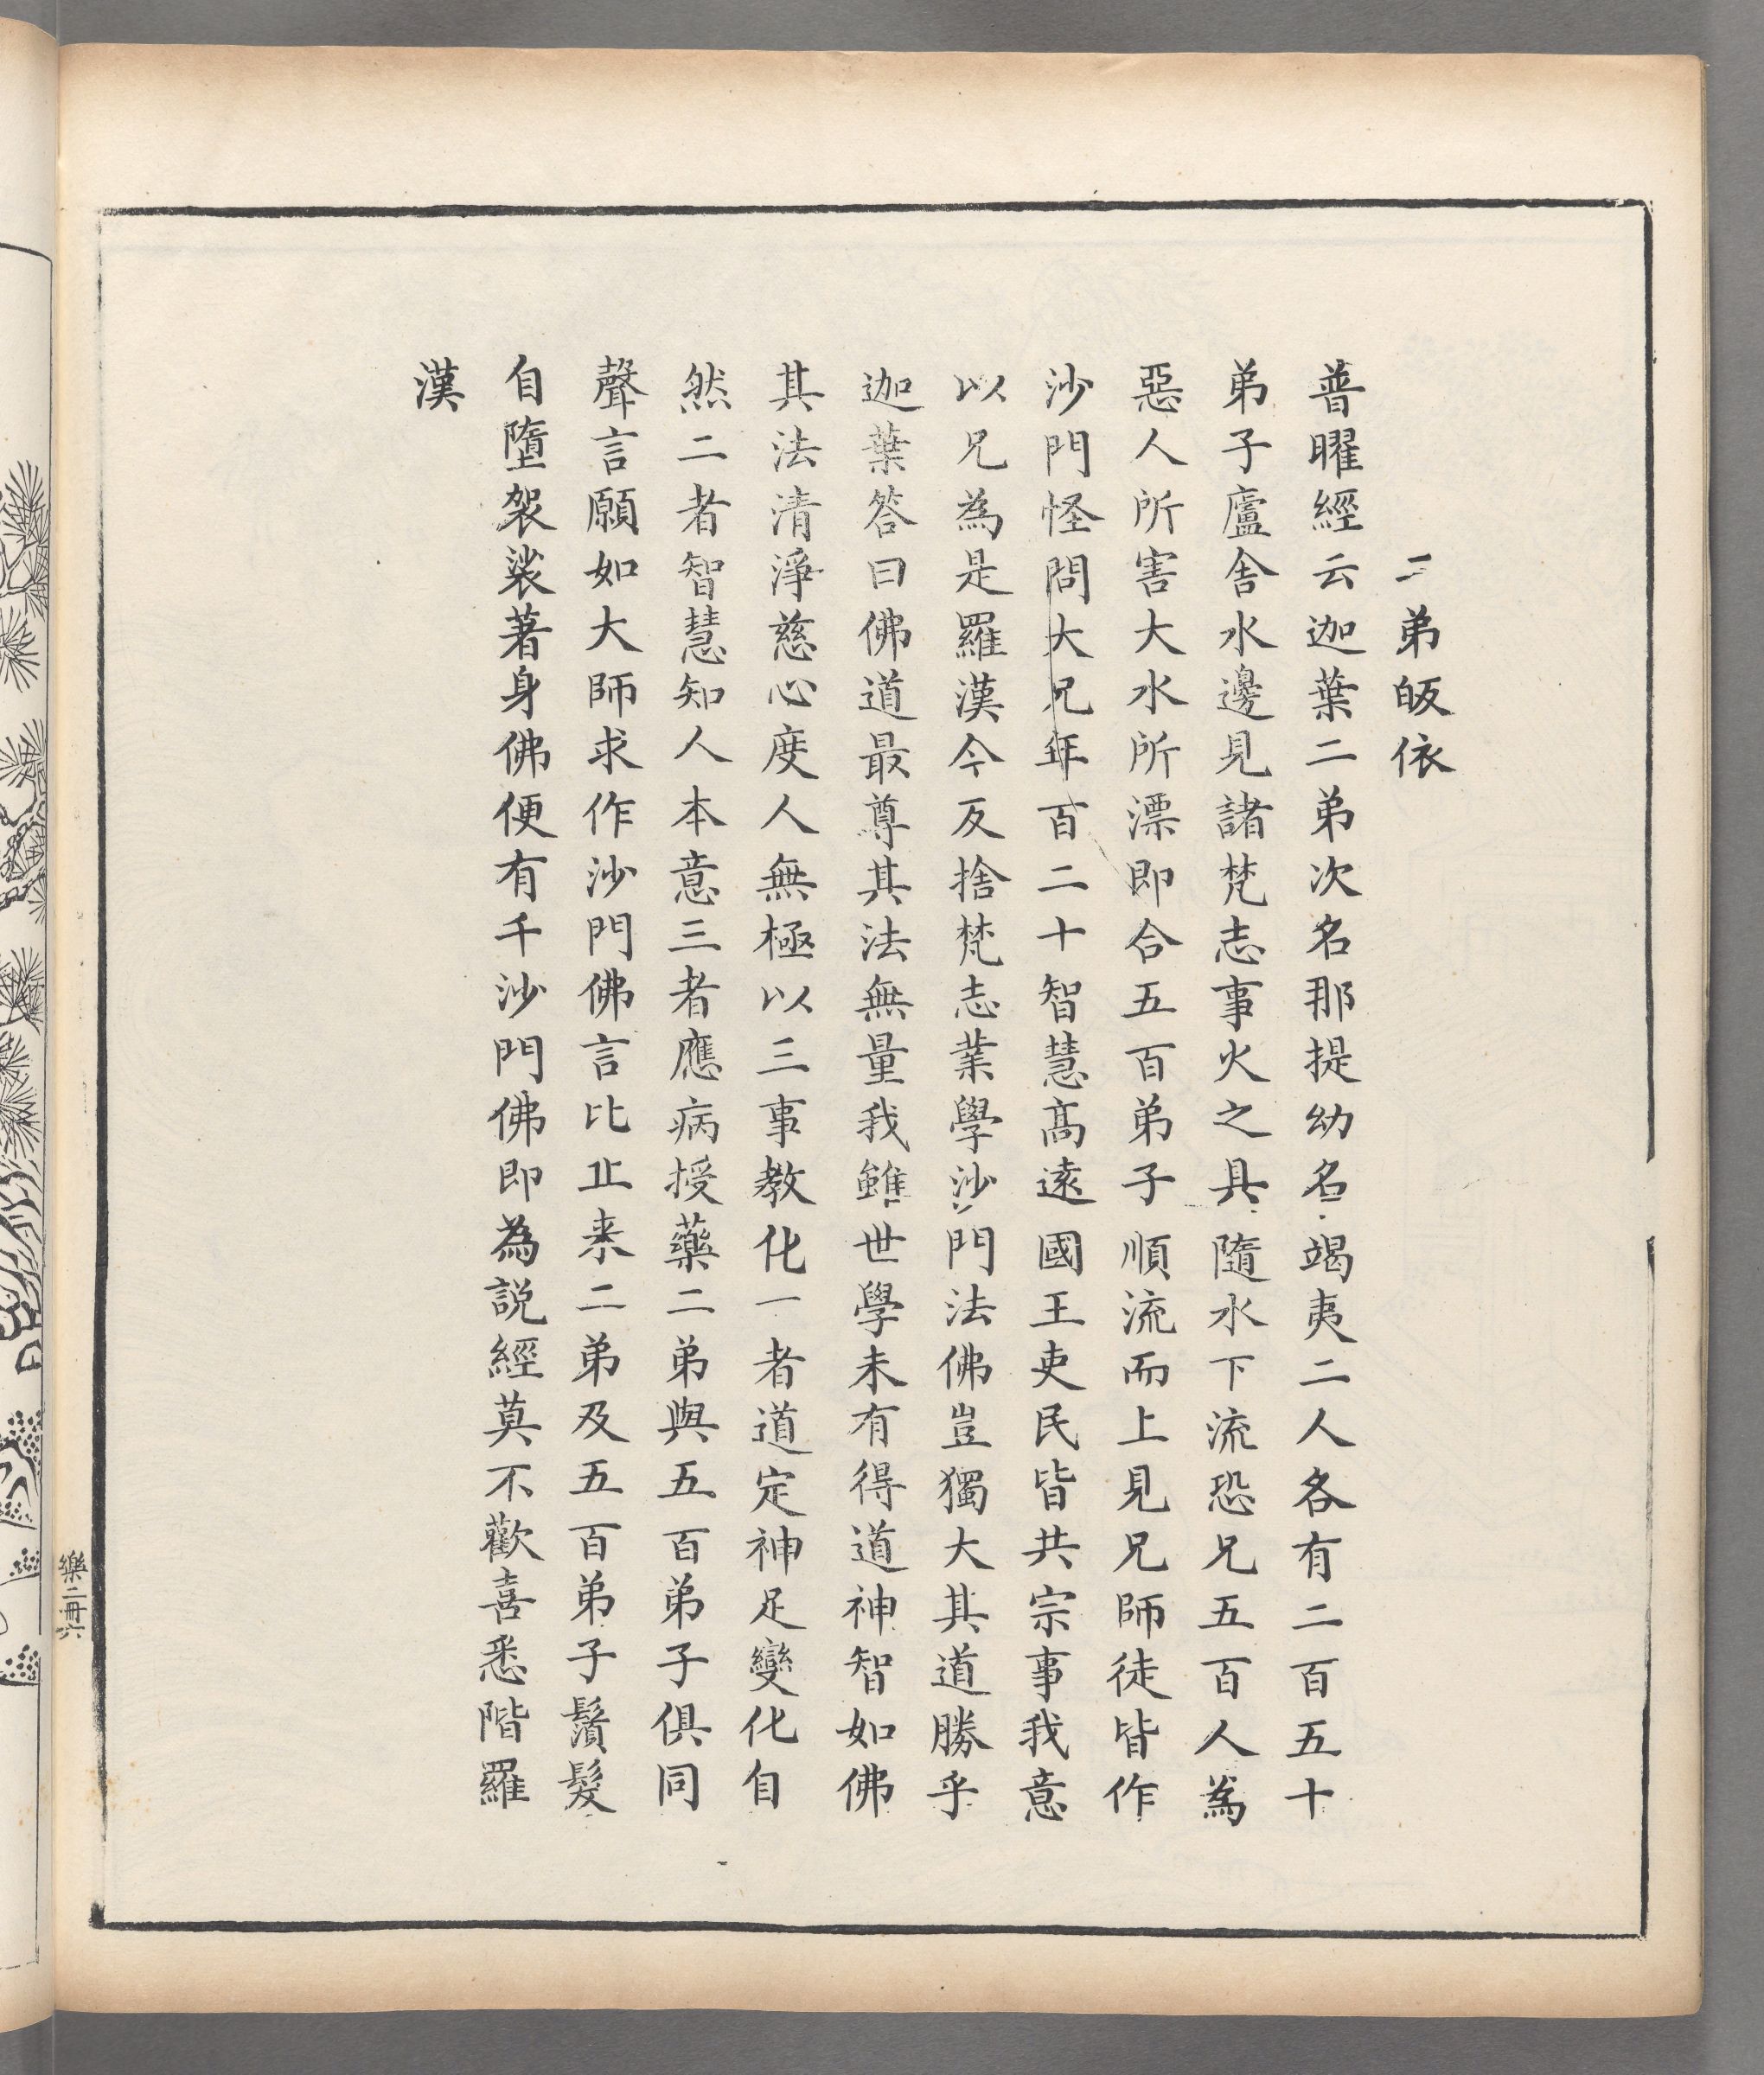 二弟皈依
普曜經云迦葉二弟次名那提幼名竭夷二人各有二百五十
弟子廬舍水邊見諸梵志事火之具隨水下流恐兄五百人為
惡人所害大水所漂即合五百弟子順流而上見兄師徒皆作
沙門怪問大兄年百二十智慧高遠國王吏民皆共宗事我意
以兄為是羅漢今反捨梵志業學沙門法佛豈獨大其道勝乎
迦葉答曰佛道最尊其法無量我雖世學未有得道神智如佛
其法清淨慈心度人無極以三事教化一者道定神足變化自
然二者智慧知人本意三者應病授藥二弟與五百弟子俱同
聲言願如大師求作沙門佛言比丘来二弟及五百弟子鬚髮
自墮袈裟著身佛便有千沙門佛即為說經莫不歡喜悉階羅
漢
樂二冊六